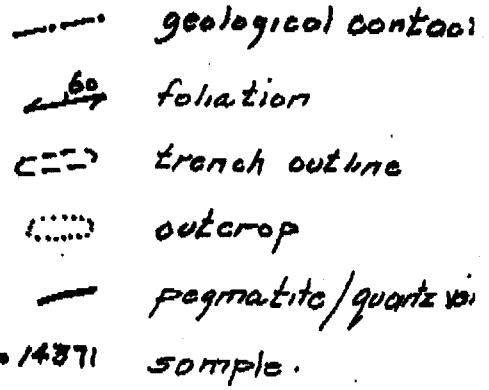 geological contact
60 foliation
trench outline
outcrop
pegmatite/quartz vei
14871 sample.